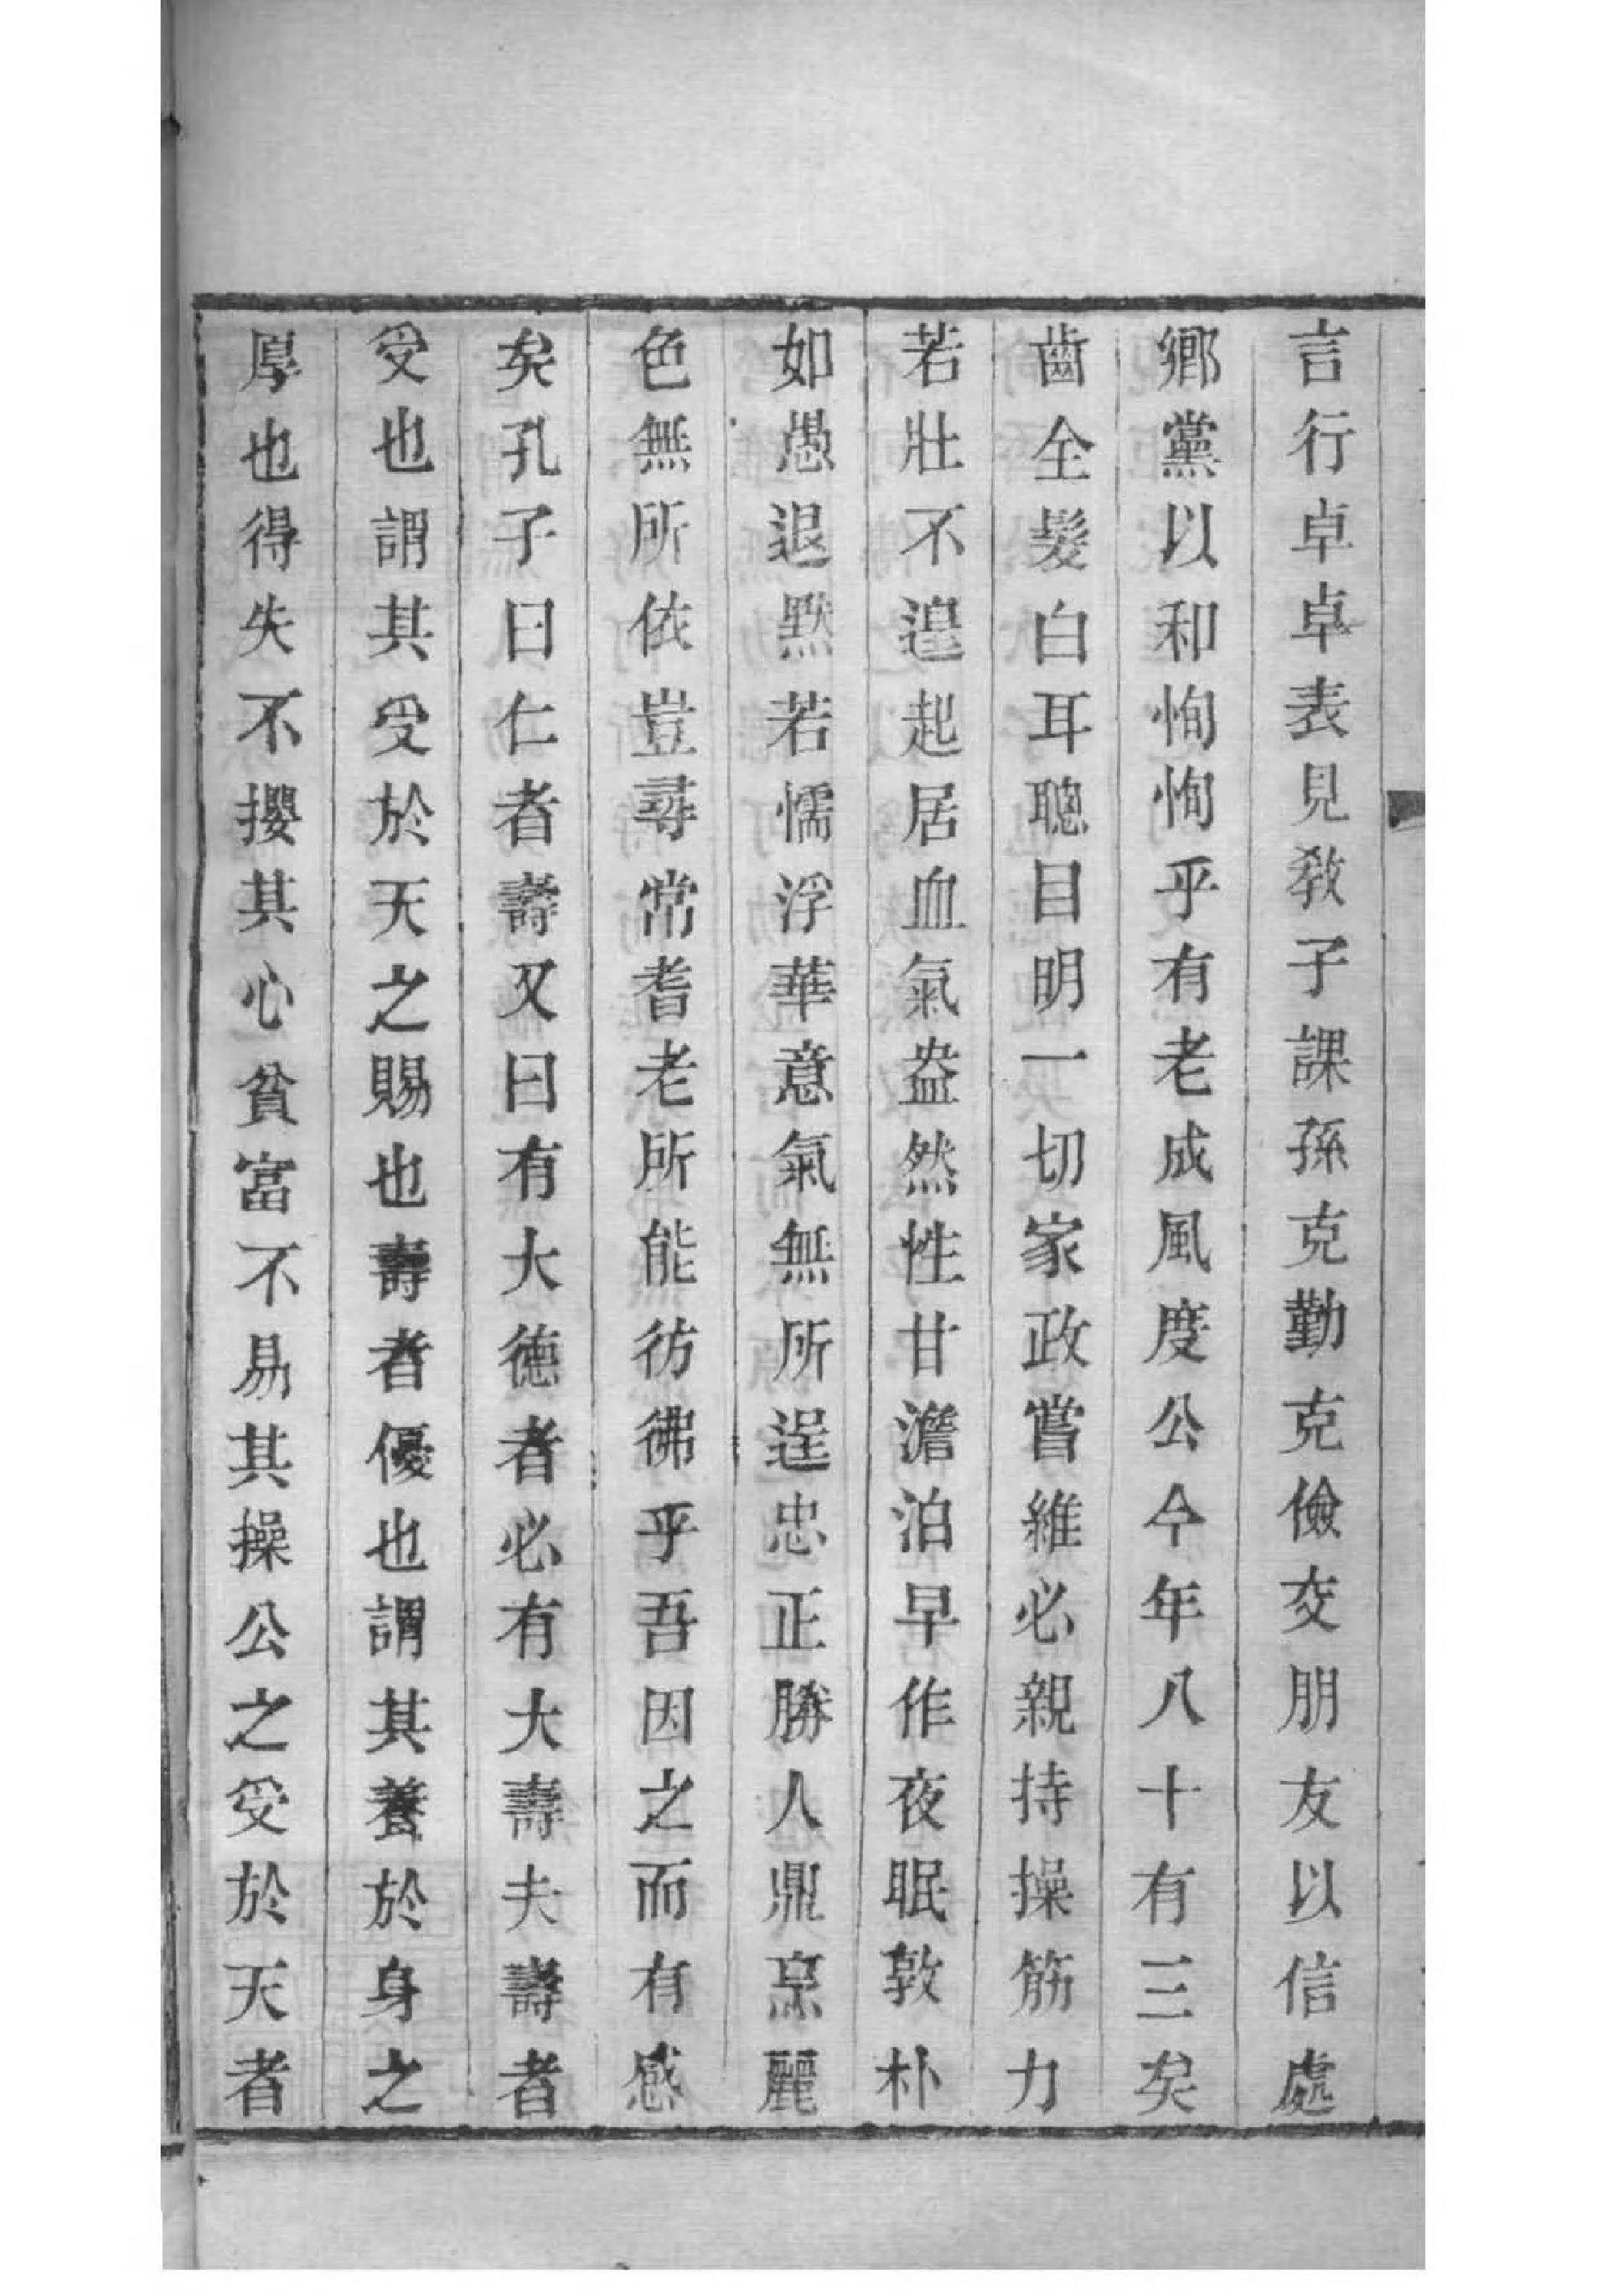 言行卓卓表見教子課孫克勤克儉交朋友以信處
鄉黨以和恂恂乎有老成風度公今年八十有三矣
齒全髮白耳聰目明一切家政嘗維必親持操筋力
若壯不遑起居血氣盎然性甘澹泊早作夜眠敦朴
如愚退默若懦浮華意氣無所逞忠正勝人鼎烹麗
色無所依豈尋常耆老所能彷彿乎吾因之而有感
矣孔子曰仁者壽又曰有大德者必有大壽夫壽者
受也謂其受於天之賜也壽者優也謂其養於身之
厚也得失不攖其心貧富不易其操公之受於天者